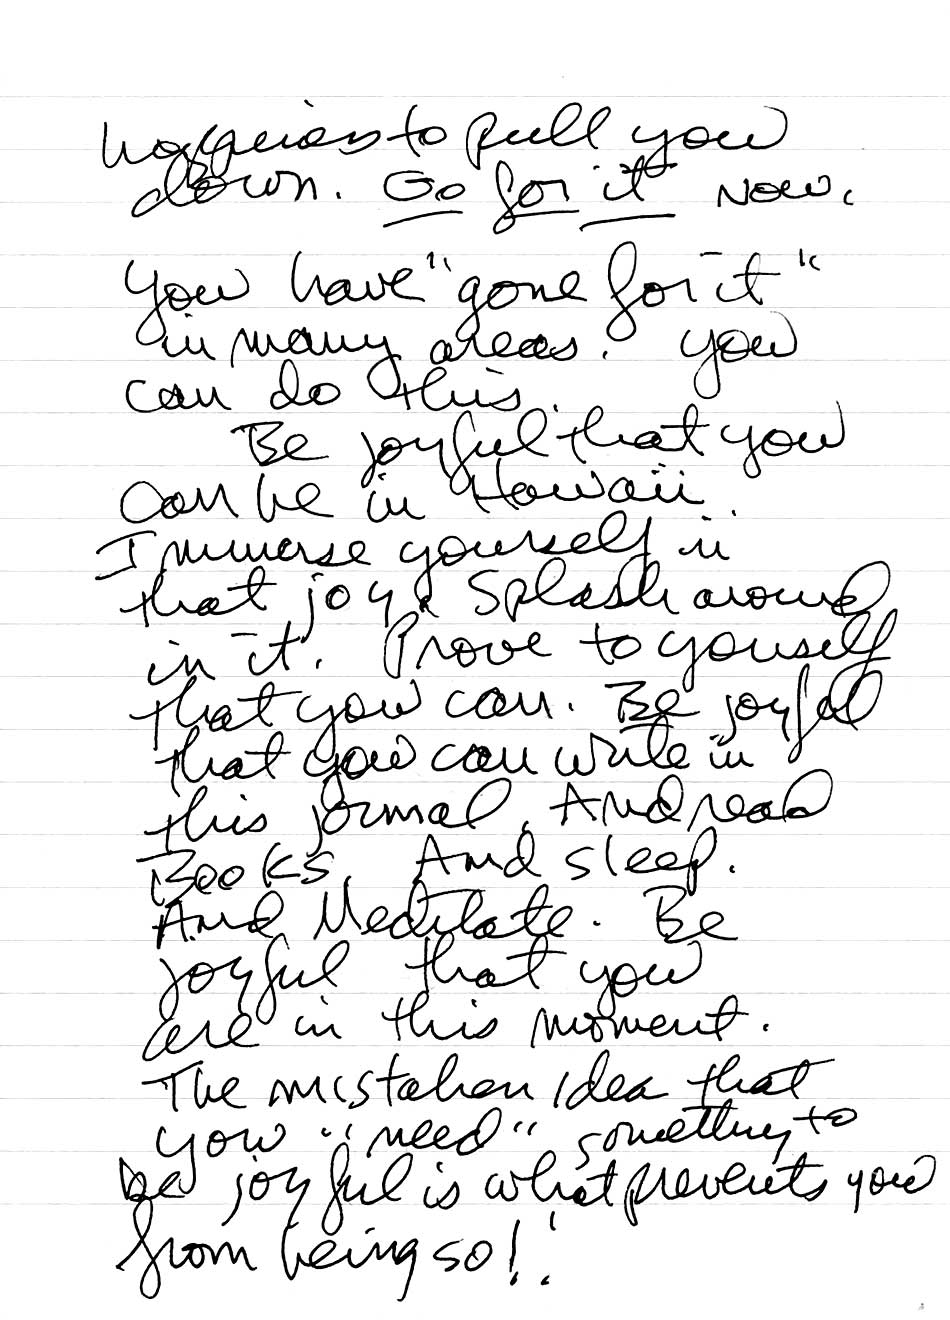 happiness to pull you
down. Go for it now.
You have "gone for it"
in many areas. You
can do this.
Be joyful that you
can be in Hawaii.
Immerse yourself in
that joy. Splash around
in it. Prove to yourself
that you can. Be joyful
that you can write in
this journal. And read
Books. And sleep.
And Meditate. Be
joyful that you
are in this moment.
The mistaken idea that
you "need" something to
be joyful is what prevents you
from being so!!